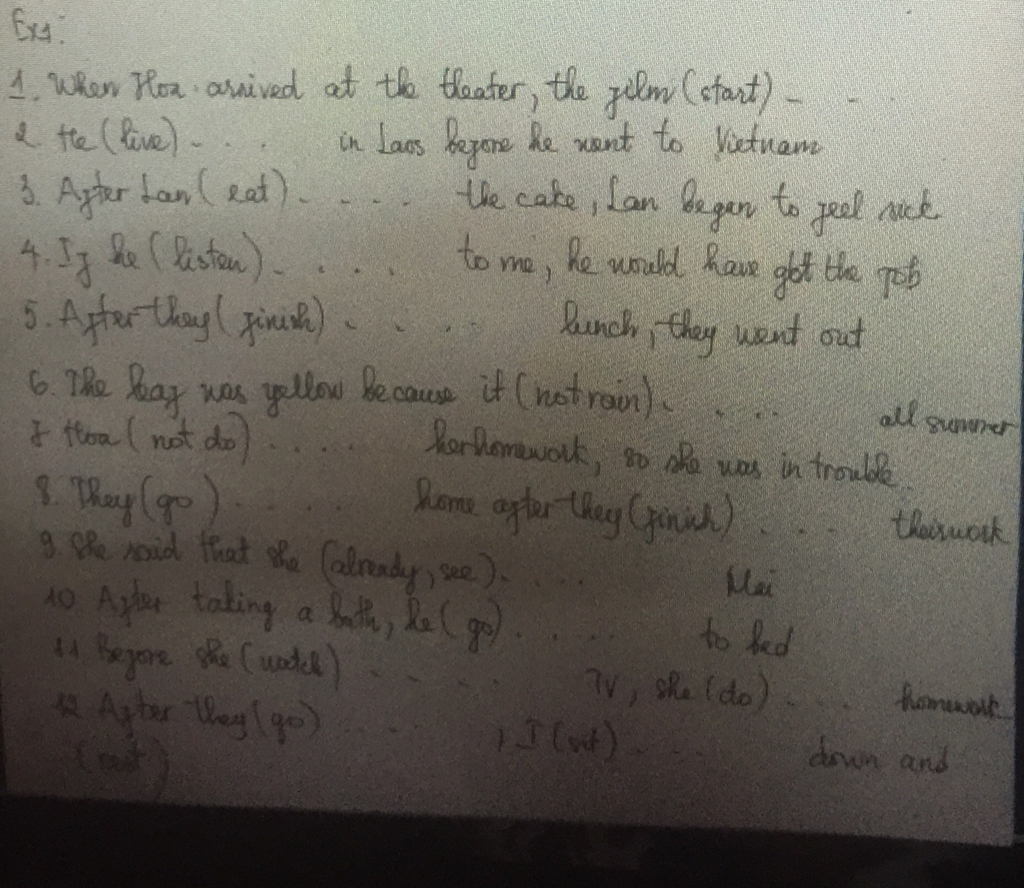 Exs:
1. When Hoa arrived at the theater, the film (start) - - .
2 He (live) - . . . in Laos before he went to Vietnam
3. After Lan (eat) . - - . . the cake, Lan began to feel sick
4. If he (listen) . . . . . to me, he would have got the job
5. After they (finish) . . . . . lunch, they went out
6. The leaf was yellow because it (not rain) . . . . . all summer
7 Hoa (not do) . . . . . her homework, so she was in trouble.
8. They (go) . . . . . home after they (finish) . . . . their work
9. She said that she (already, see) . . . . . Mai
10. After taking a bath, he (go) . . . . . to bed
11 Before she (watch) . . . . . TV, she (do) . . . . homework
12 After they (go) . . . . , I (sit) . . . . down and
(rest)